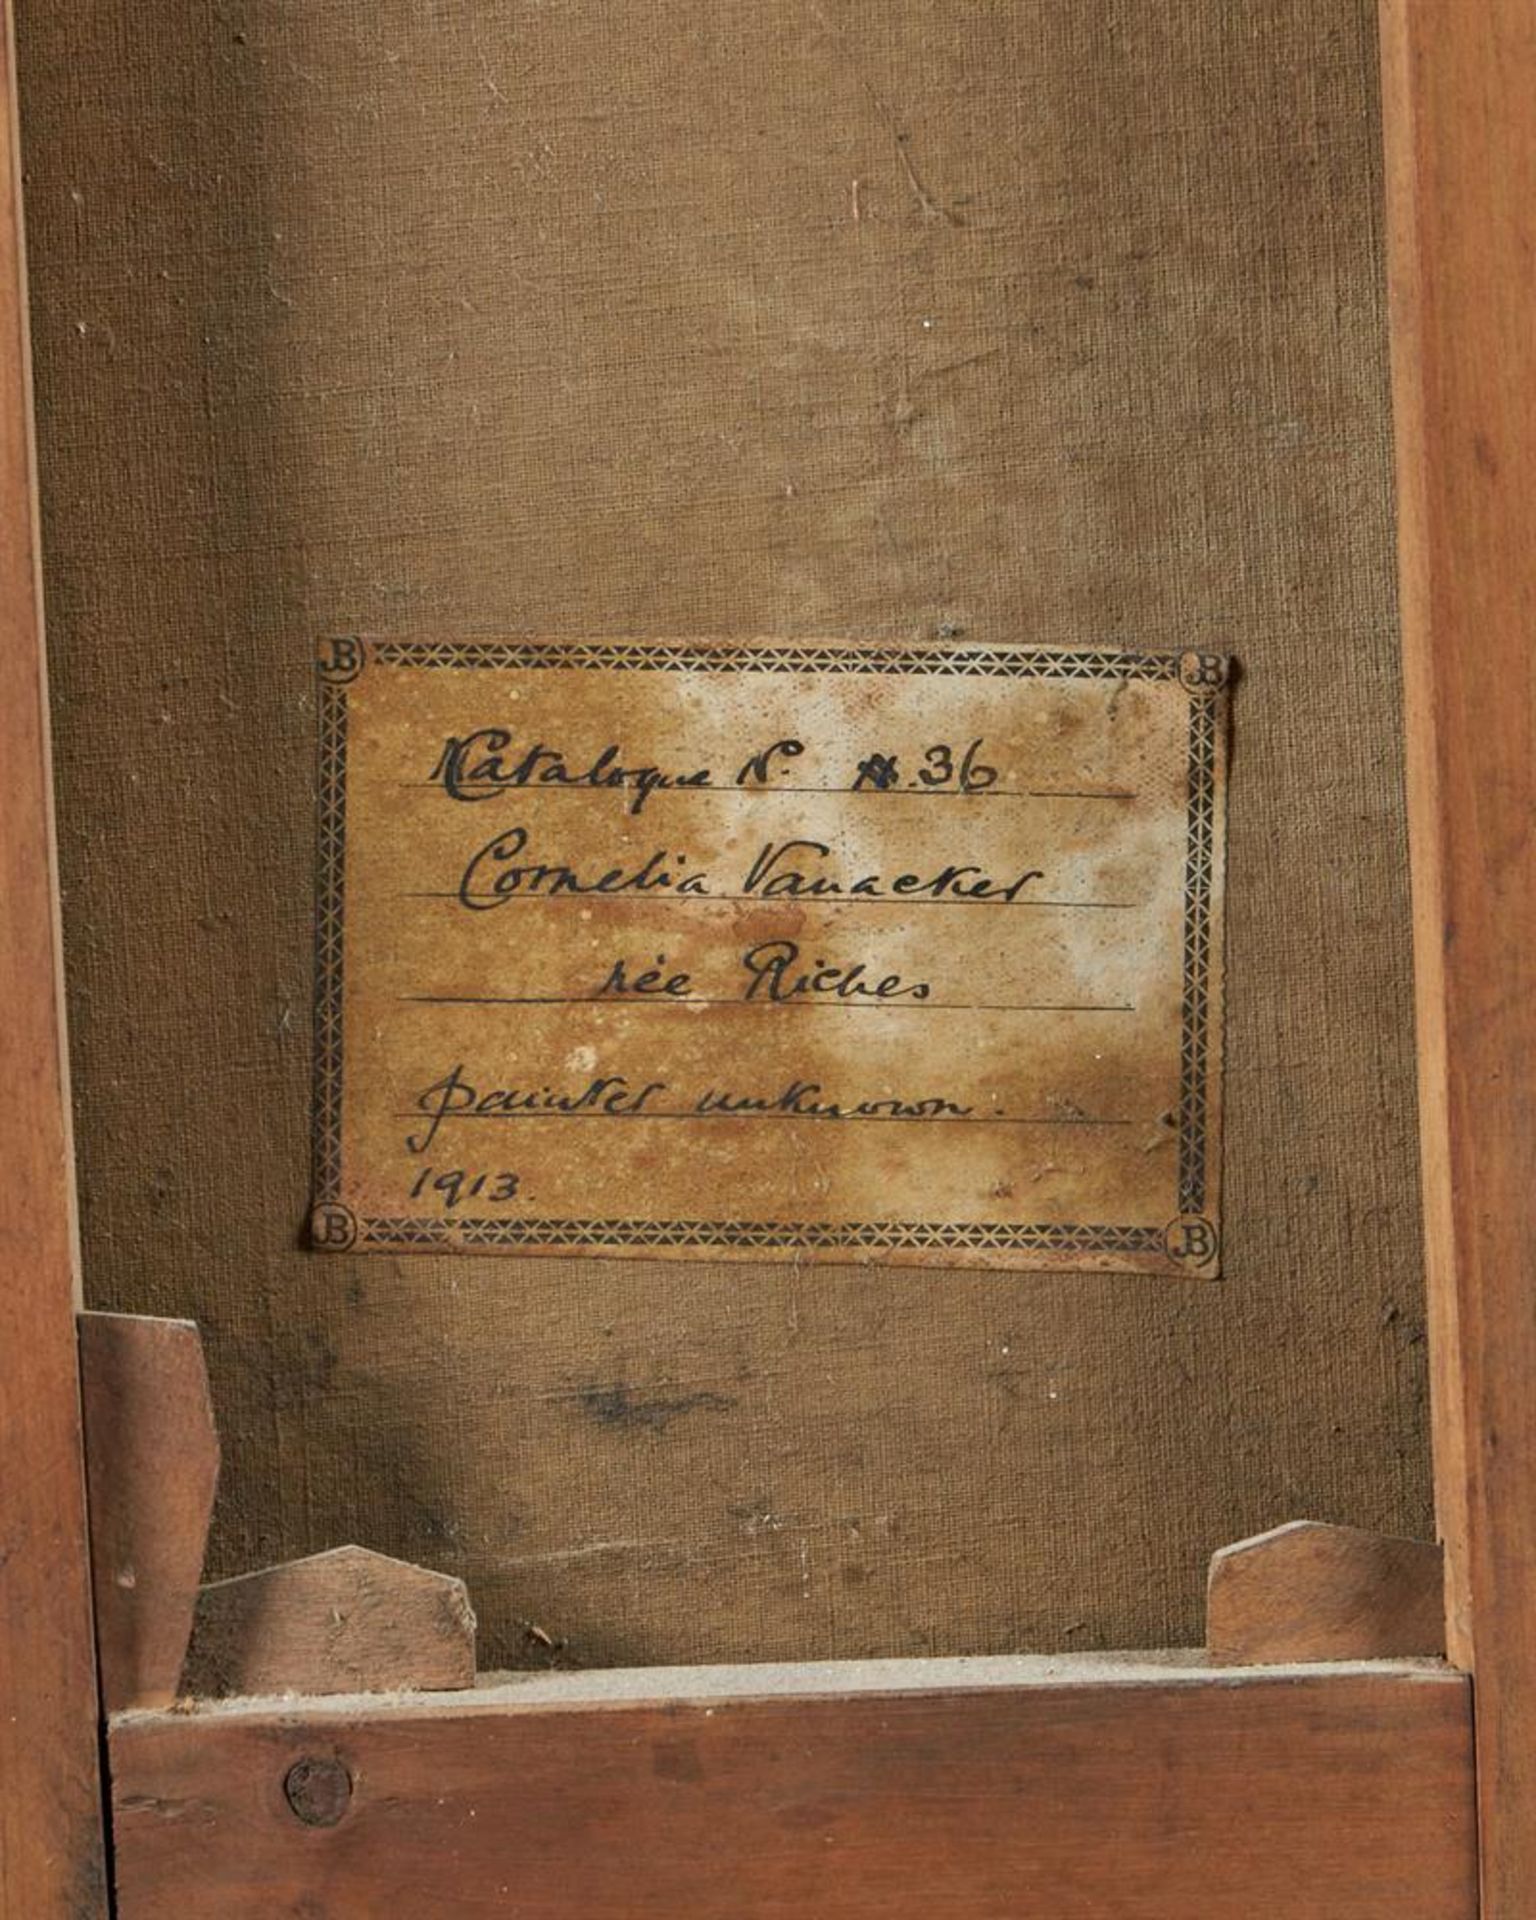 JB JB
Catalogue No. 36
Cornelia Vanacker
née Riches
painter unknown.
1913.
JB JB